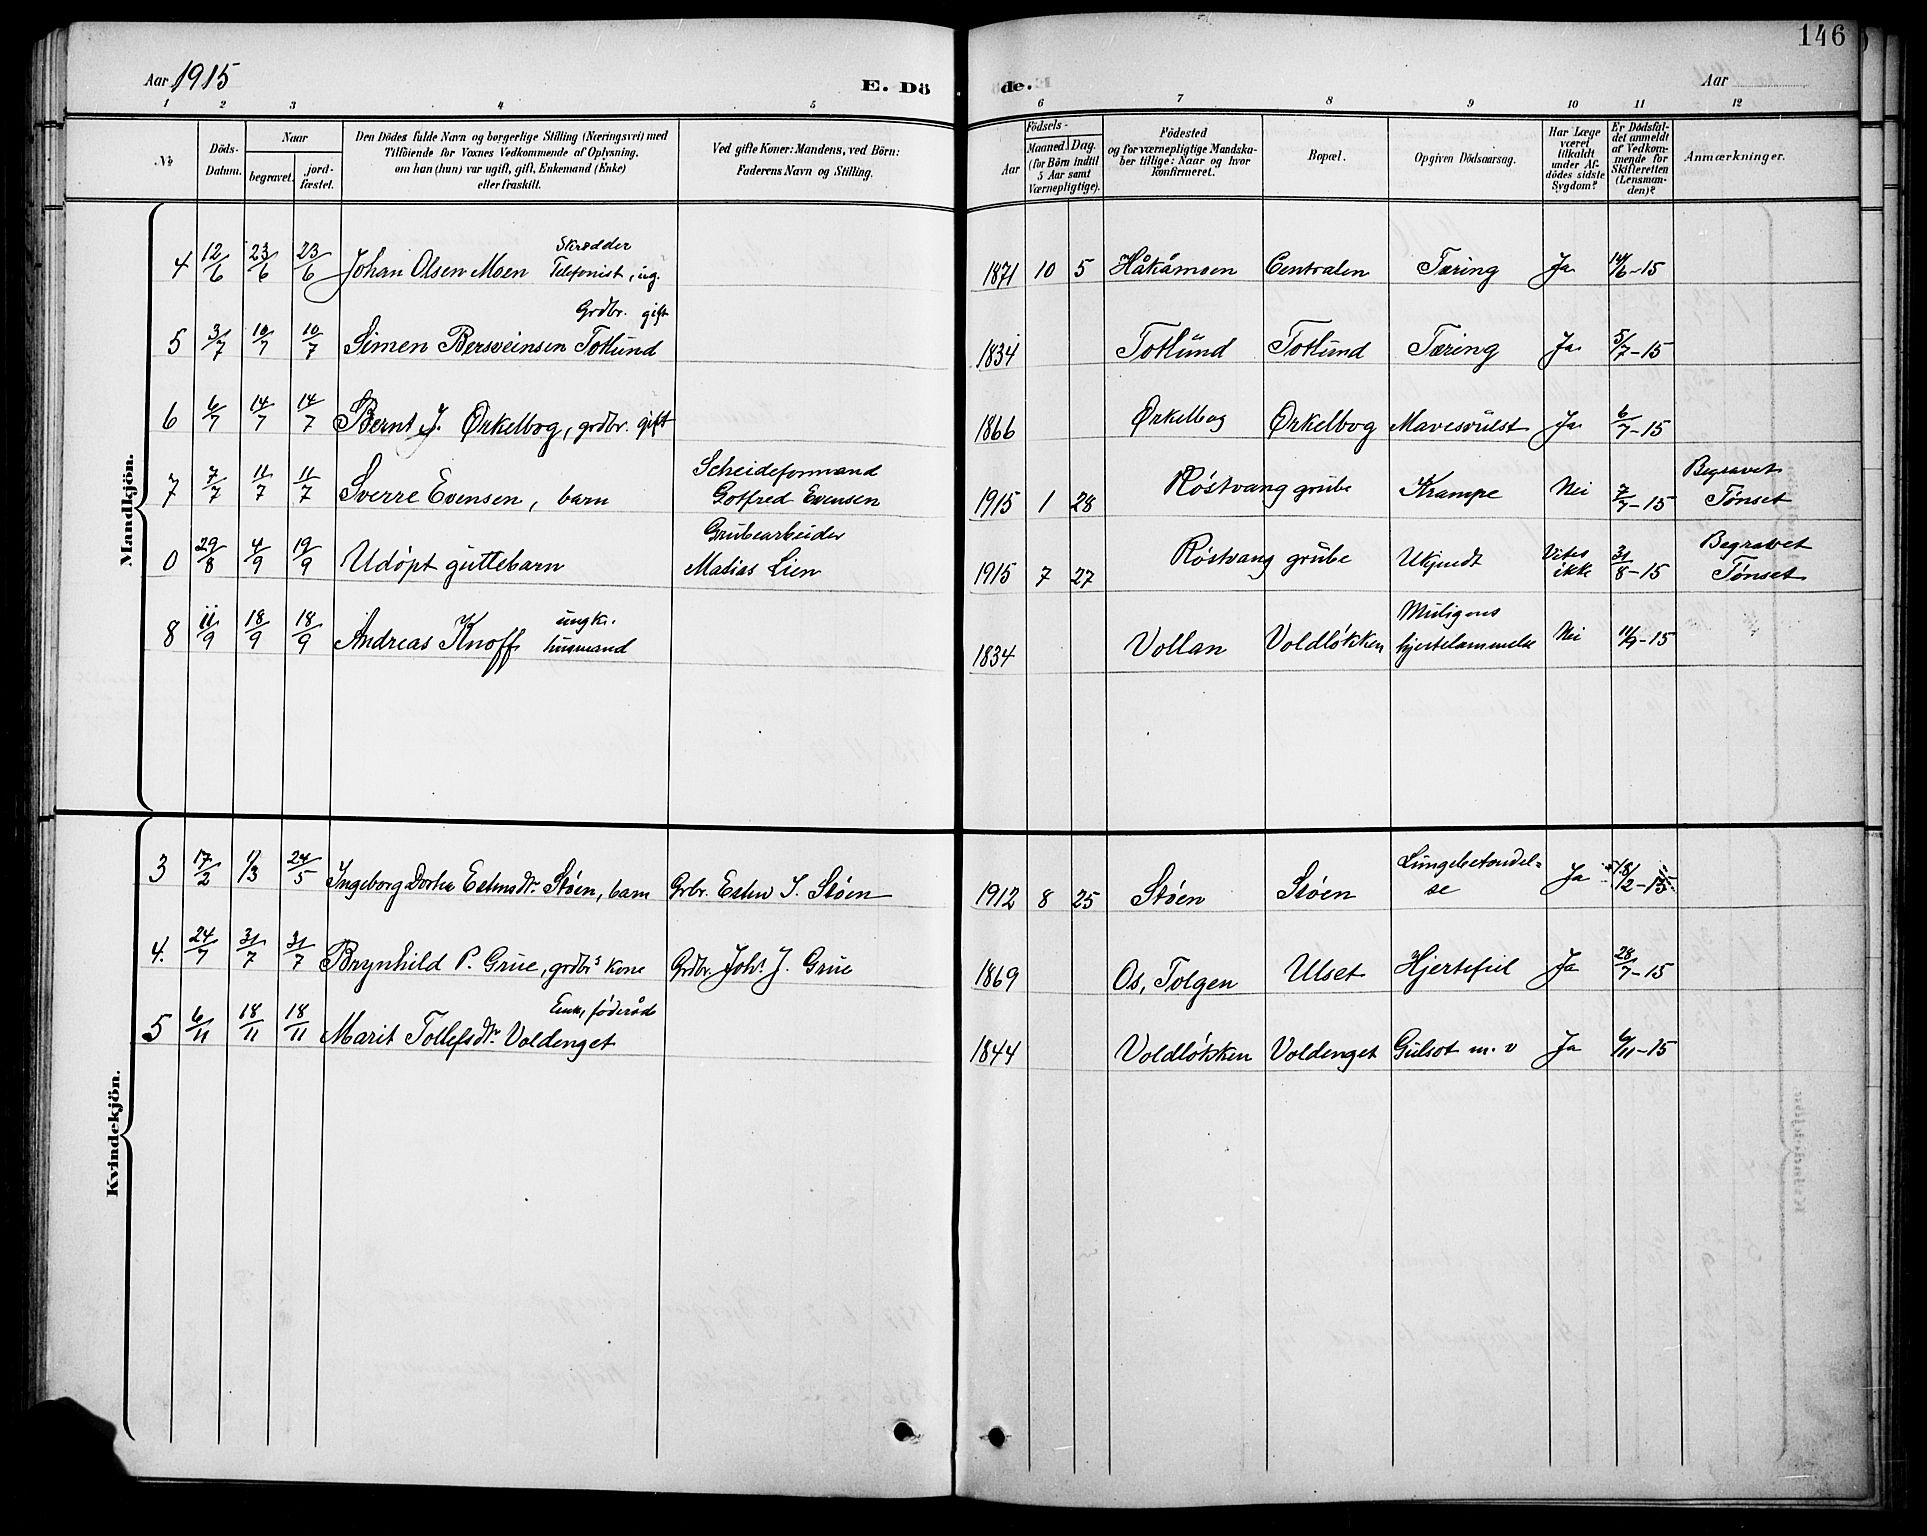 146
Aar 1915
E. Dö
de.
Aar
1 2 3 4 5 6 7 8 9 10 11 12
No
Döds-
Datum.
Naar
begravet.
jord-
fæstet.
Den Dödes fulde Navn og borgerlige Stilling (Næringsvei) med
Tilföiende for Voxnes Vedkommende af Oplysning,
om han (hun) var ugift, gift, Enkemand (Enke)
eller fraskilt.
Ved gifte Koner: Mandens, ved Börn:
Faderens Navn og Stilling.
Födsels-
Aar
Maaned. Dag.
(for Börn indtil
5 Aar samt
Værnepligtige).
Födested
og for værnepligtige Mandska-
ber tillige: Naar og hvor
konfirmeret.
Bopæl.
Opgiven Dödsaarsag.
Har Læge
været
tilkaldt
under Af-
dödes sidste
Sygdom?
Er Dödsfal-
det anmeldt
af Vedkom-
mende for
Skifteretten
(Lensman-
den)?
Anmærkninger.
Mandkjön.
Skrædder
4 12/6 23/6 23/6 Johan Olsen Moen Telefonist, ug. 1871 10 5 Håkåmoen Centralen Tæring Ja 14/6-15
Grdbr. gift
5 3/7 10/7 10/7 Simen Bersveinsen Totlund 1834 Totlund Totlund Tæring Ja 5/7-15
6 6/7 14/7 14/7 Bernt J. Ørkelbog, grdbr. gift 1866 Ørkelbog Ørkelbog Mavesvulst Ja 6/7-15
Scheideformand Begravet
7 7/7 11/7 11/7 Sverre Evensen, barn Gotfred Evensen 1915 1 28 Røstvang grube Krampe Nei 7/7-15 Tønset
Grubearbeider Begravet
0 29/8 4/9 19/9 Udøpt guttebarn Matias Lien 1915 7 27 Røstvang grube Ukjendt Vites ikke 31/8-15 Tønset
ungk. Muligens
8 11/9 18/9 18/9 Andreas Knoff husmand 1834 Vollan Voldløkken hjertelammelse Nei 11/9-15
Kvindekjön.
Lungebetændel-
3 17/2 1/3 24/5 Ingeborg Dortea Estensdtr. Støen, barn Grbr. Esten S. Støen 1912 8 25 Støen Støen se Ja 18/2-15
4. 24/7 31/7 31/7 Brynhild P. Grue, grdbrs kone Grdbr. Johs J. Grue 1869 Os, Tolgen Ulset Hjertefeil Ja 28/7-15
Enke, føderåds
5 6/11 18/11 18/11 Marit Tollefsdtr. Voldenget 1844 Voldløkken Voldenget Gulsot m. v Ja 6/11-15